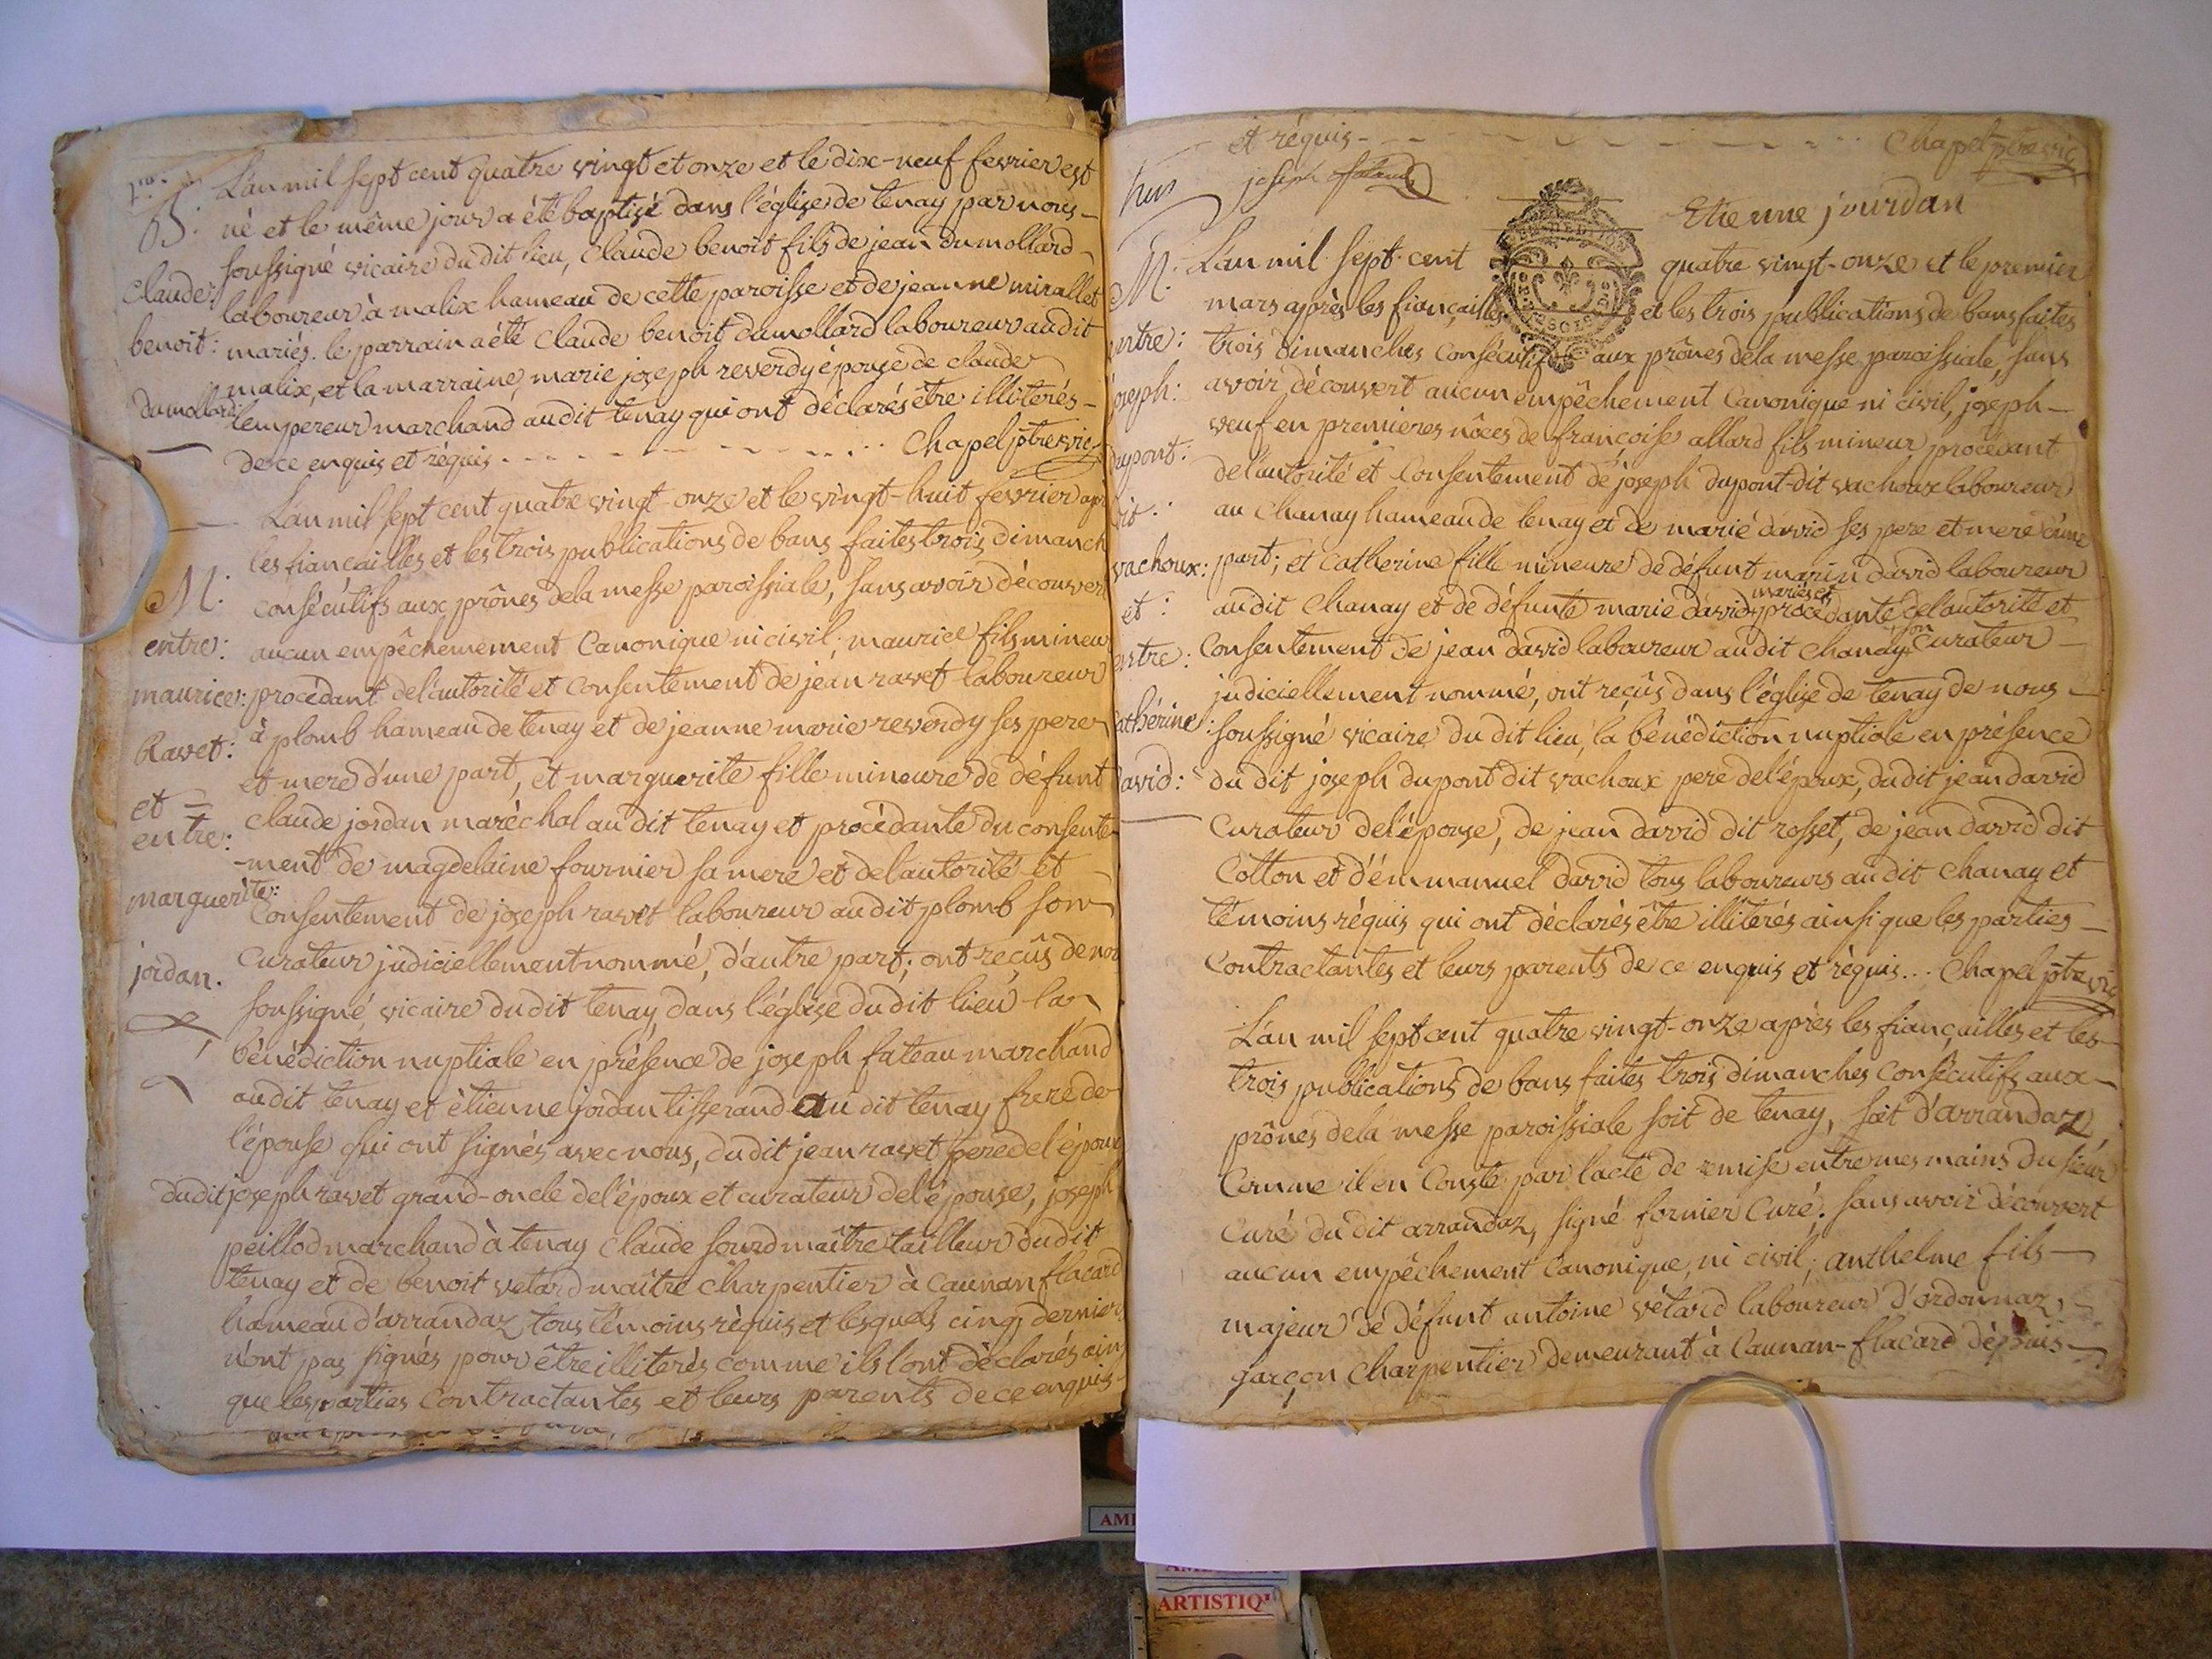 B.
Claude:
benoit:
dumollard
L'an mil sept cent quatre vingt et onze et le dix-neuf fevrier est
né et le même jour a été baptisé dans l'église de tenay par nous
soussigné vicaire du dit lieu, Claude benoit fils de jean dumollard
laboureur à malix hameau de cette paroisse et de jeanne mirallet
mariés. le parrain a été Claude benoit dumollard laboureur au dit
malix, et la marraine, marie joseph reverdy épouse de claude
lempereur marchand au dit tenay qui ont déclarés être illiterés
de ce enquis et réquis - - - Chapel ptre vic
M:
entre:
maurice:
Ravet:
et
entre:
marguerite:
jordan.
L'an mil sept cent quatre vingt-onze et le vingt-huit fevrier apr
les fiancailles et les trois publications de bans faites trois dimanch
consécutifs aux prônes de la messe paroissiale, sans avoir découver
aucun empêchemement Canonique ni civil, maurice fils mineur
procédant de l'autorité et Consentement de jean ravet laboureur
à plomb hameau de tenay et de jeanne marie reverdy ses pere
et mere d'une part, et marguerite fille mineure de défunt
Claude jordan maréchal au dit tenay et procédante du consente
-ment de magdelaine fournier sa mere et de l'autorité et
Consentement de joseph ravet laboureur au dit plomb son
Curateur judiciellement nommé, d'autre part; ont reçûs de nou
soussigné vicaire du dit tenay, dans l'église du dit lieu la
bénédiction nuptiale en présence de joseph fateau marchand
au dit tenay et étienne jordan tisserand au dit tenay frere de
l'épouse qui ont signés avec nous, du dit jean ravet pere de l'époux
du dit joseph ravet grand-oncle de l'époux et curateur de l'épouse, joseph
peillod marchand à tenay Claude sourd maître tailleur du dit
tenay et de benoit vetard maître charpentier à Caunan flacard
hameau d'arrandaz, tous témoins réquis et lesquels cinq dernier
n'ont pas signés pour être illiterés comme ils l'ont déclarés ain
que les parties Contractantes et leurs parents de ce enquis
et réquis - - - Chapel ptre vic
joseph
Etienne jourdan
M:
entre:
joseph:
dupont:
dit:
vachoux:
et:
entre:
Cathérine:
david:
L'an mil sept cent quatre vingt-onze et le premier
mars après les fiançailles et les trois publications de bans faites
trois dimanches consécutifs aux prônes de la messe paroissiale, sans
avoir découvert aucun empêchement Canonique ni civil, joseph
veuf en premieres nôces de françoise allard fils mineur procédant
de l'autorité et Consentement de joseph dupont-dit vachoux laboureur
au Chanay hameau de tenay et de marie david ses pere et mere d'une
part; et Catherine fille mineure de défunt marin david laboureur
au dit Chanay et de défunte marie david mariés et procédante de l'autorité et
Consentement de jean david laboureur au dit Chanay son Curateur
judiciellement nommé, ont reçûs dans l'église de tenay de nous
soussigné vicaire du dit lieu, la bénédiction nuptiale en présence
du dit joseph dupont dit vachoux pere de l'époux, du dit jean david
Curateur de l'épouse, de jean david dit rosset, de jean david dit
Cotton et d'émmanuel david tous laboureurs au dit Chanay et
témoins réquis qui ont déclarés être illiterés ainsi que les parties
Contractantes et leurs parents de ce enquis et réquis... Chapel ptre vic
L'an mil sept cent quatre vingt-onze après les fiançailles et les
trois publications de bans faites trois dimanches Consécutifs aux
prônes de la messe paroissiale soit de tenay, soit d'arrandaz,
Comme il en Conste par l'acte de remise entre mes mains du sieur
Curé du dit arrandaz, signé fornier Curé. sans avoir découvert
aucun empêchement Canonique, ni civil; anthelme fils
majeur de défunt antoine vétard laboureur d'ordonnaz,
garçon Charpentier demeurant à Caunan-flacard dépuis
ARTISTIQ